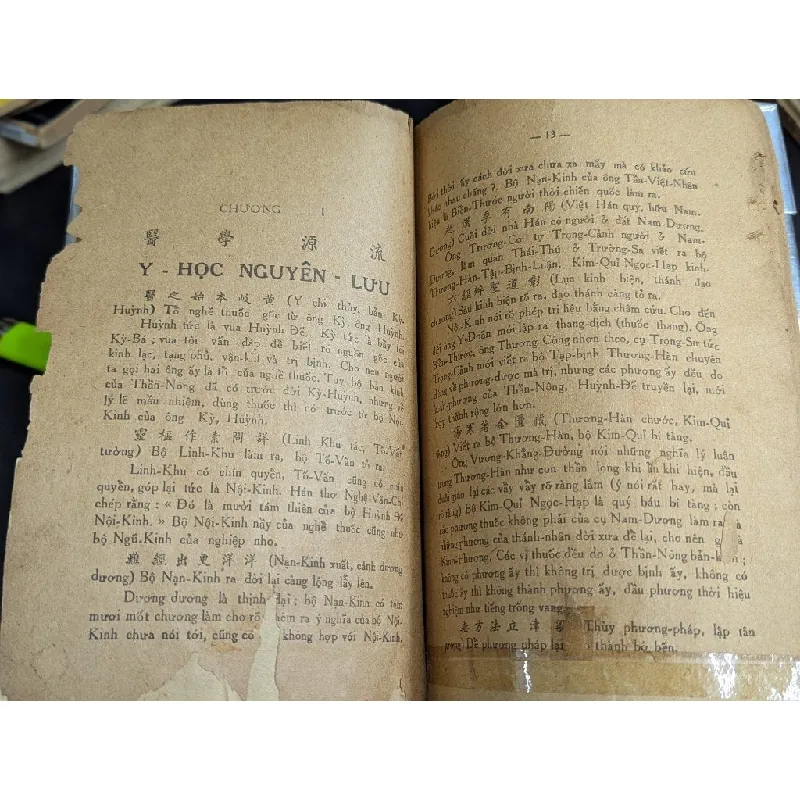 CHƯƠNG I
醫 學 源 流
Y - HỌC NGUYÊN - LƯU
醫之始本岐黄 (Y chi thủy, bản Kỳ,
Huỳnh) Tổ nghề thuốc gốc từ ông Kỳ, ông Huỳnh.
Huỳnh tức là vua Huỳnh Đế, Kỳ tức là bầy tôi
Kỳ-Bá; vua tôi vấn đáp, để biết rõ nguồn gốc của
kinh lạc, tạng phủ, vận-khí và trị bịnh. Cho nên người
ta gọi hai ông ấy là tổ của nghề thuốc. Tuy bộ bản kinh
của Thần-Nông đã có trước đời Kỳ-Huỳnh, nhưng về
lý lẽ mầu nhiệm, dùng thuốc thì có trước từ bộ Nội-
Kinh của ông Kỳ, Huỳnh.
靈樞作素問詳 (Linh Khu tác, Tố-Vấn
tường) Bộ Linh-Khu làm ra, bộ Tố-Vấn tỏ ra.
Linh-Khu có chín quyển, Tố-Vấn cũng có chín
quyển, góp lại tức là Nội-Kinh. Hán thơ Nghệ-Văn-Chí
chép rằng: « Đó là mười tám thiên của bộ Huỳnh Đế
Nội-Kinh. » Bộ Nội-Kinh này của nghề thuốc cũng như
bộ Ngũ-Kinh của nghiệp nho.
難經出更洋洋 (Nạn-Kinh xuất, cánh dương
dương) Bộ Nạn-Kinh ra đời lại càng lộng lẫy lên.
Dương dương là thịnh đại; bộ Nạn-Kinh có tám
mươi mốt chương làm cho rõ thêm ra ý nghĩa của bộ Nội-
Kinh chưa nói tới, cũng có không hợp với Nội-Kinh,
— 13 —
thời ấy cách đời xưa chưa xa mấy mà có khảo cứu
khác nhau chăng ?. Bộ Nạn-Kinh của ông Tần-Việt-Nhân
hiệu là Biển-Thước người thời chiến quốc làm ra.
越漢季有南陽 (Việt Hán quý, hữu Nam-
Dương) Cuối đời nhà Hán có người ở đất Nam-Dương.
Ông Trương-Cơ tự Trọng-Cảnh người ở Nam-
Dương làm quan Thái-Thú ở Trường-Sa viết ra bộ
Thương-Hàn-Tập-Bịnh-Luận, Kim-Quĩ Ngọc-Hạp kinh.
六經辨聖道彰 (Lục kinh biện, thánh đạo
chương) Sáu kinh biện tỏ ra, đạo thánh càng tỏ ra.
Nội-Kinh nói rõ phép trị liệu bằng châm cứu. Cho đến
đời ông Y-Doãn mới lập ra thang-dịch (thuốc thang). Ông
Biển-Thước, ông Thương-Công nhơn theo, cụ Trọng-Sư tức
Trọng-Cảnh mới viết ra bộ Tạp-bịnh Thương-Hàn chuyên
chú về phương-dược mà trị, nhưng các phương ấy đều do
kinh phương của Thần-Nông, Huỳnh-Đế truyền lại, mới
Kỳ thành rộng lớn hơn.
傷寒著金匱藏 (Thương-Hàn chước, Kim-Quĩ
tàng) Viết ra bộ Thương-Hàn, bộ Kim-Quĩ bí tàng.
Ông Vương-Khẳng-Đường nói những nghĩa lý luận
trong Thương-Hàn như con thần long khi ẩn khi hiện, đầu
đuôi gồm lại các vẩy vẩy rõ ràng lắm (ý nói rất hay, mà lại
rõ ràng) Bộ Kim-Quĩ Ngọc-Hạp là quý báu bí tàng; còn
các phương thuốc không phải của cụ Nam-Dương làm ra
những phương của thánh-nhân đời xưa để lại, cho nên gọi là
Kinh-phương, Các vị thuốc đều do ở Thần-Nông bản-kinh;
không có phương ấy thì không trị được bịnh ấy, không có
thuốc ấy thì không thành phương ấy, đầu phương thời hiệu
nghiệm như tiếng trống vang
垂方法立津梁 Thùy phương-pháp, lập tân
lương) Để phương pháp lại thành bờ bến.